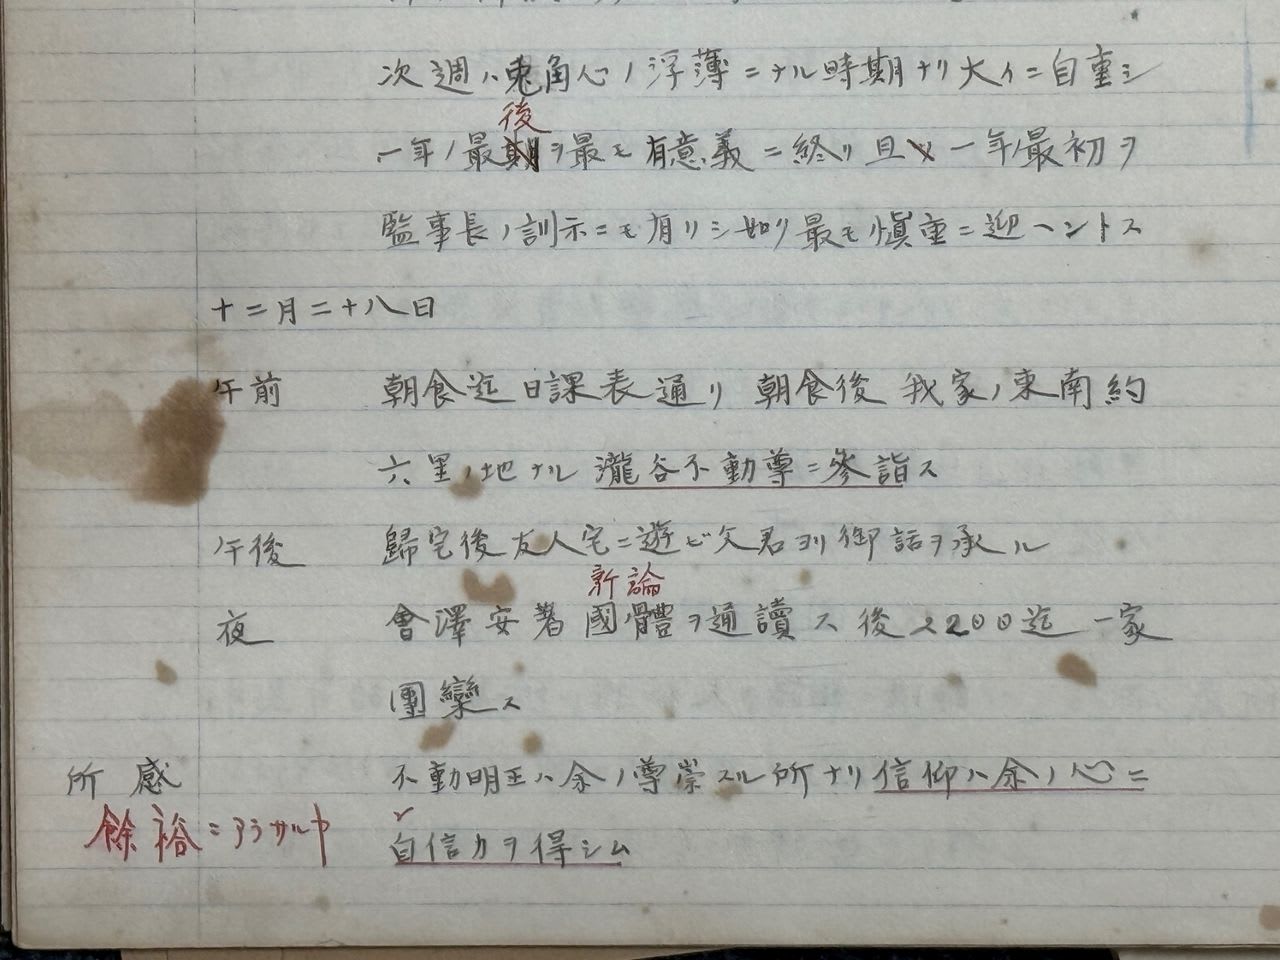 次週ハ兎角心ノ浮薄ニナル時期ナリ大イニ自重シ
後
一年ノ最期ヲ最モ有意義ニ終リ且ツ一年ノ最初ヲ
監事長ノ訓示ニモ有リシ如ク最モ慎重ニ迎ヘントス
十二月二十八日
午前 朝食迄日課表通リ 朝食後 我家ノ東南約
六里ノ地ナル瀧谷不動尊ニ參詣ス
午後 歸宅後友人宅ニ遊ビ父君ヨリ御話ヲ承ル
新論
夜 會澤安著國體ヲ通讀ス後2200迄一家
團欒ス
所感 不動明王ハ余ノ尊崇スル所ナリ信仰ハ余ノ心ニ
餘裕ニアラサルヤ
自信力ヲ得シム